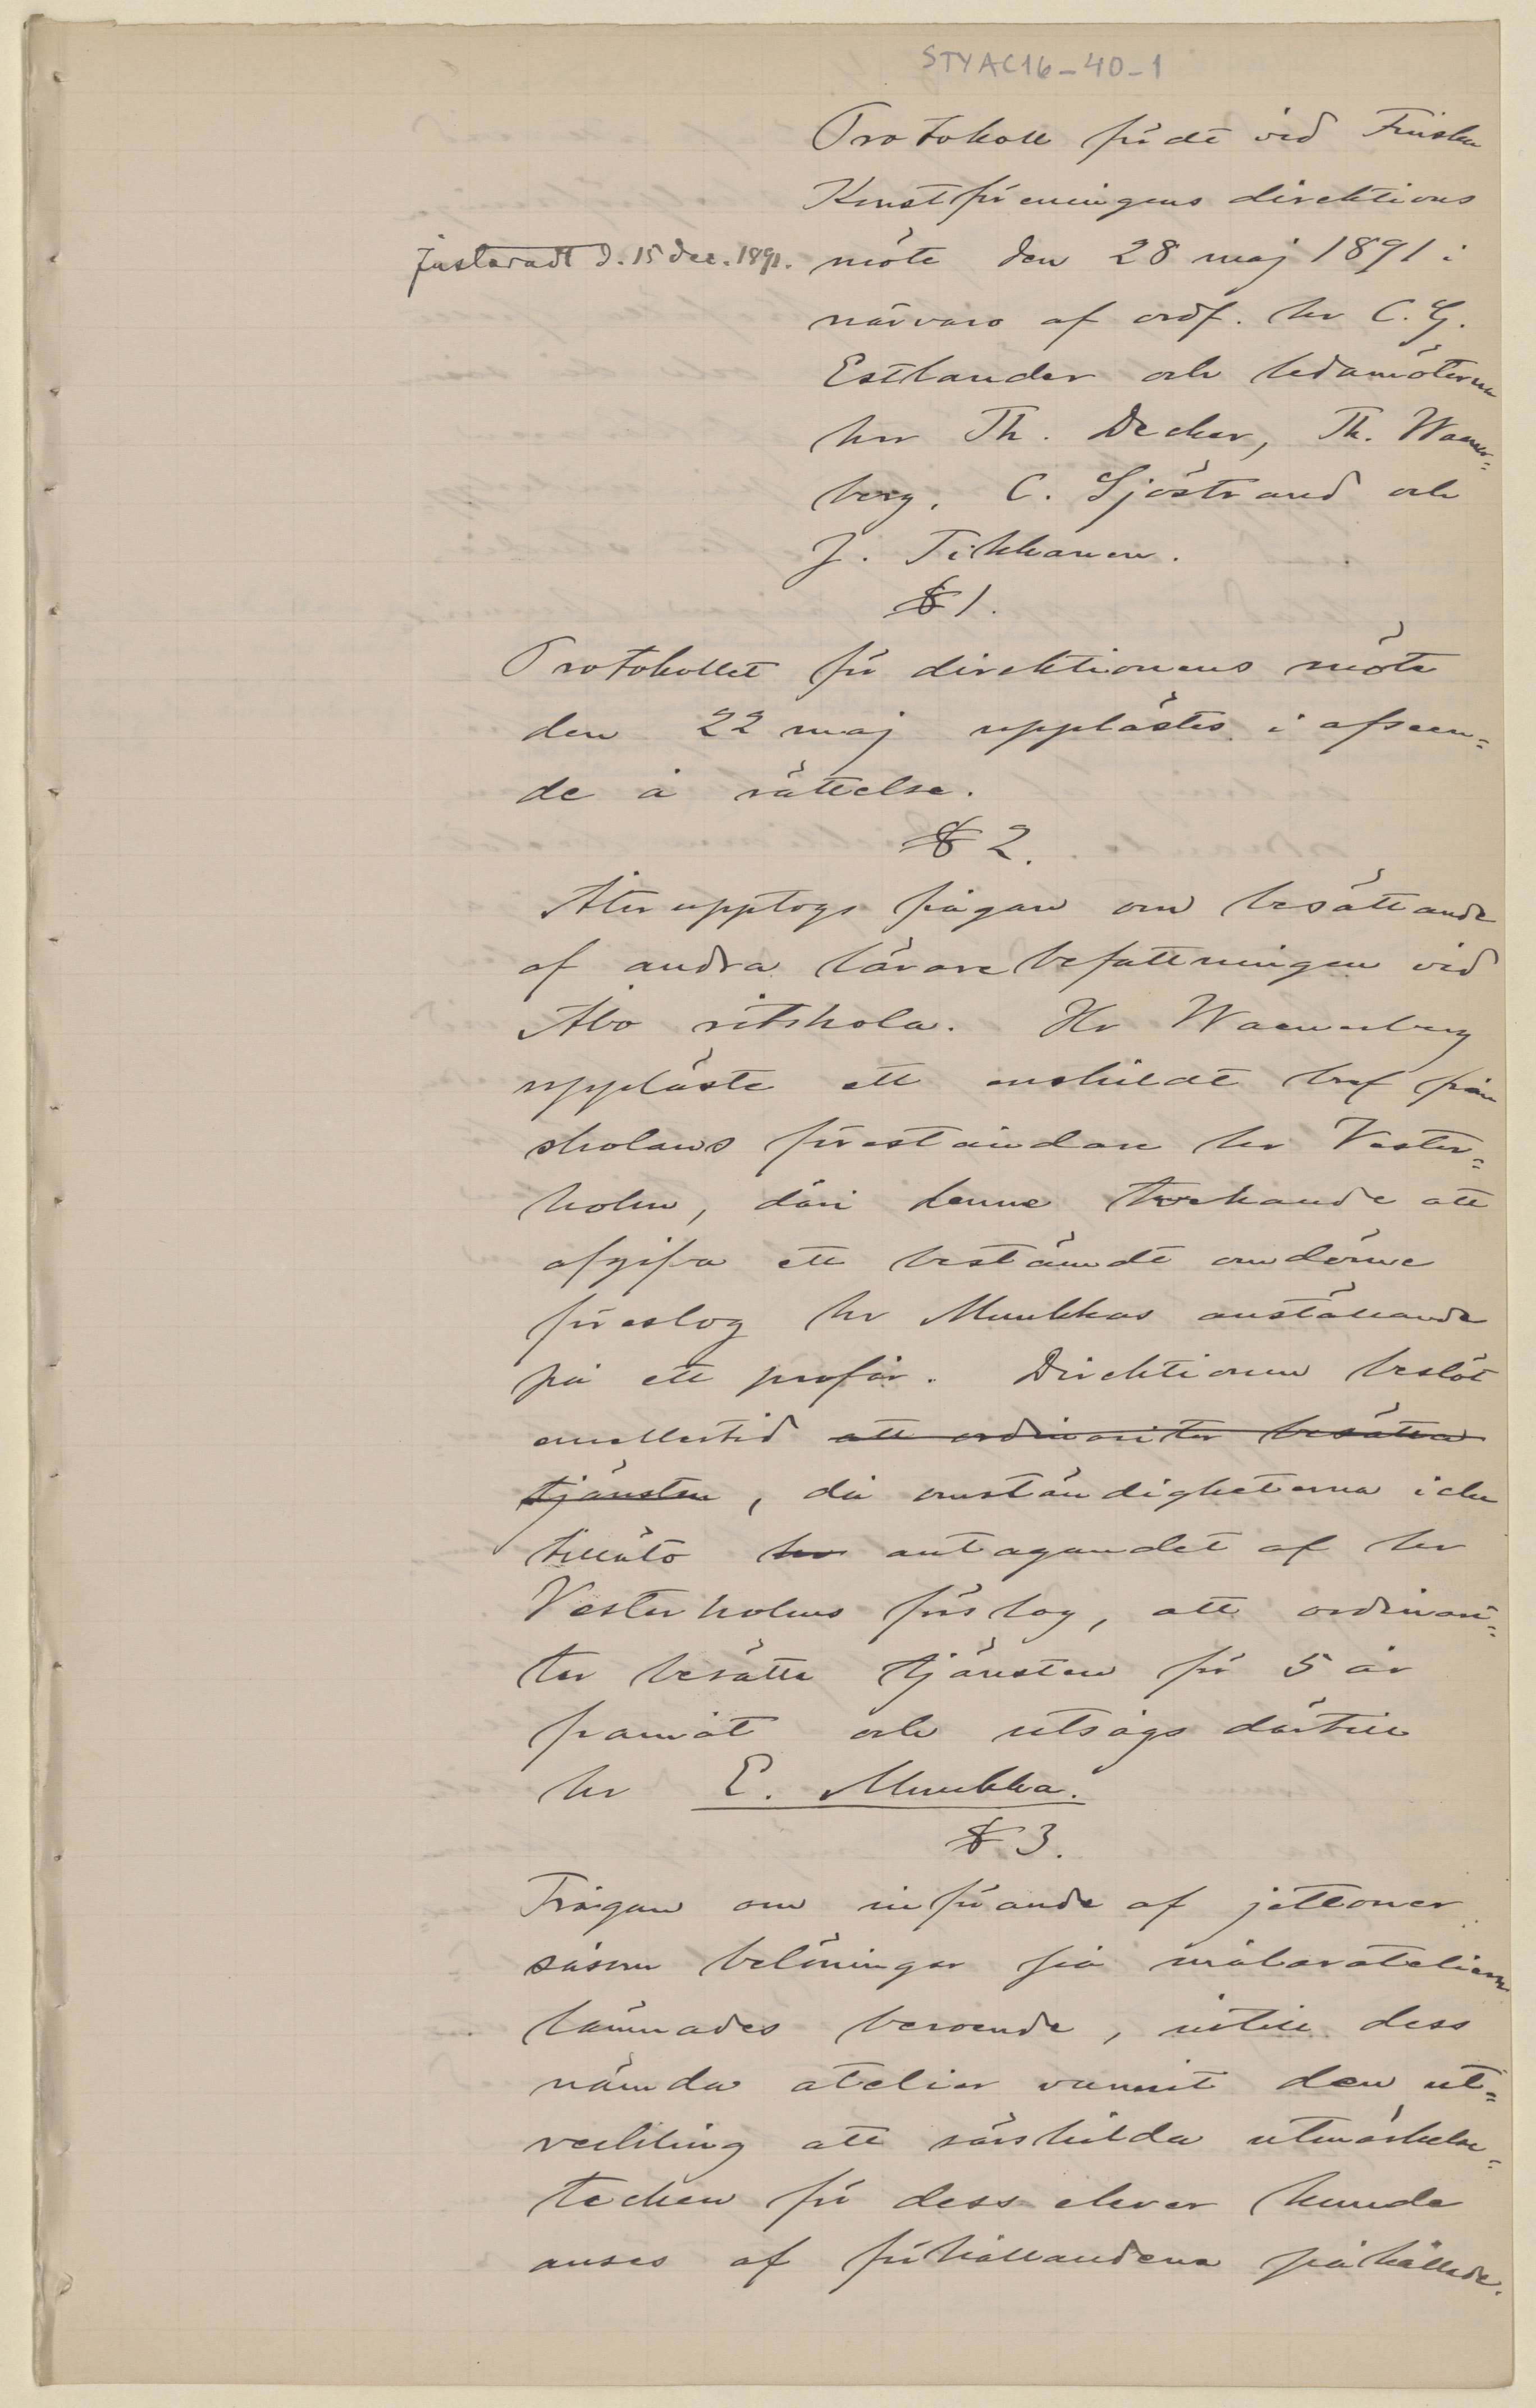 STYAC16-40-1
Protokoll fördt vid Finska
Konstföreningens direktions
Justeradt d. 15 dec. 1891.
möte den 28 maj 1891 i
närvaro af ordf. hr C. G.
Estlander och ledamöterna
hrr Th. Decker, Th. Waener=
berg, C. Sjöstrand och
J. Tikkanen.
§ 1.
Protokollet för direktionens möte
den 22 maj upplästes i afseen=
de å rättelse.
§ 2.
Återupptogs frågan om besättande
af andra lärarebefattningen vid
Åbo ritskola. Hr Waenerberg
uppläste ett enskildt bref från
skolans föreståndare hr Vester=
holm, däri denne tvekande att
afgifva ett bestämdt omdöme
föreslog hr Muukkas anställande
på ett profår. Direktionen beslöt
emellertid att ordinariter besätta
tjänsten, då omständigheterna icke
tilläto hr antagandet af hr
Vesterholms förslag, att ordinari=
ter besätta tjänsten för 5 år
framåt och utsågs därtill
hr E. Muukka.
§ 3.
Frågan om införande af jettoner
såsom belöningar på målarateliern
lämnades beroende, intill dess
nämda atelier vunnit den ut=
veckling att särskilda utmärkelse=
tecken för dess elever kunde
anses af förhållandena påkallade.